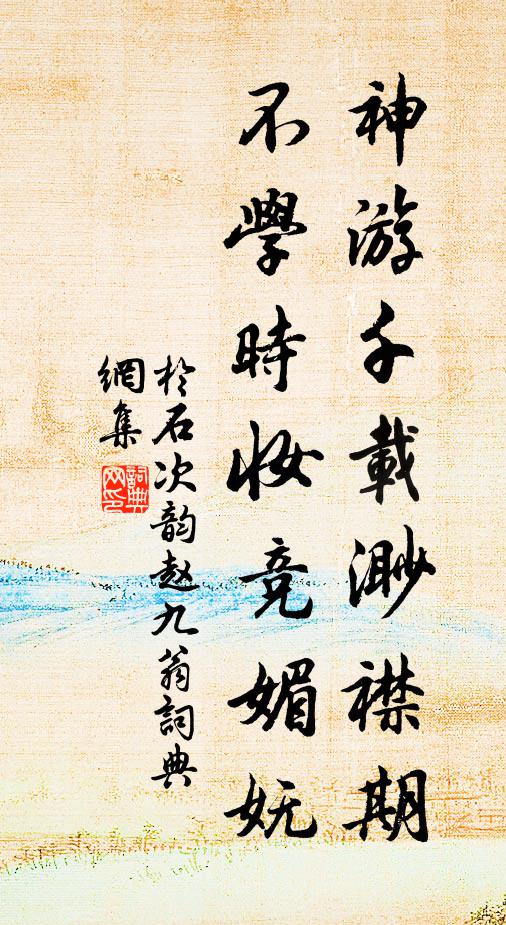 神游千載渺襟期
不學時妝竞媚妩
於石次韵赵九翁詞典
網集
詞典
网印